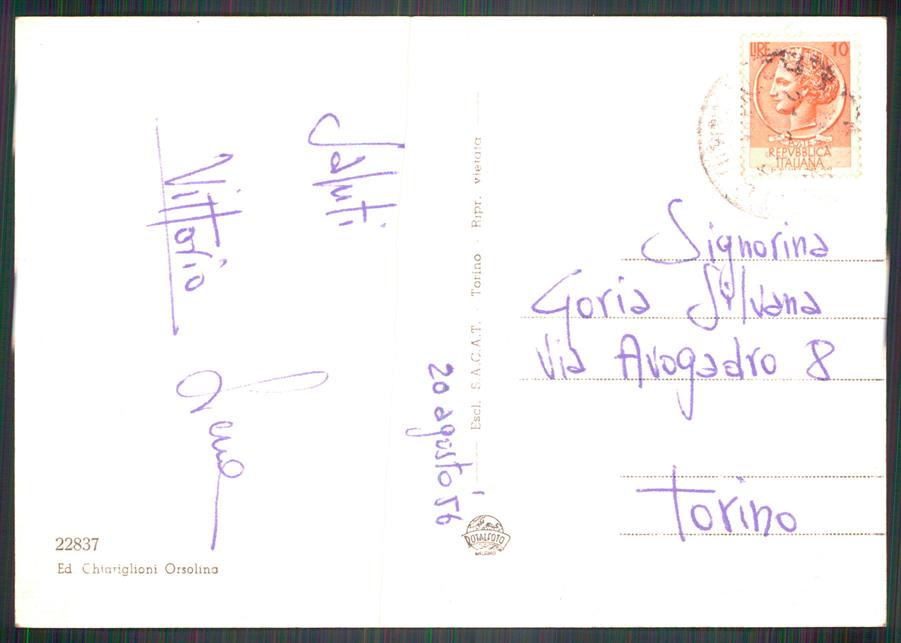 Saluti
Vittorio
20 agosto 56
Escl. S.A.C.A.T. - Torino - Ripr. vietata
LIRE 10
POSTE
REPVBBLICA
ITALIANA
Signorina
Goria Silvana
Via Avogadro 8
Torino
ROTALFOTO
MILANO
22837
Ed Chiariglioni Orsolina